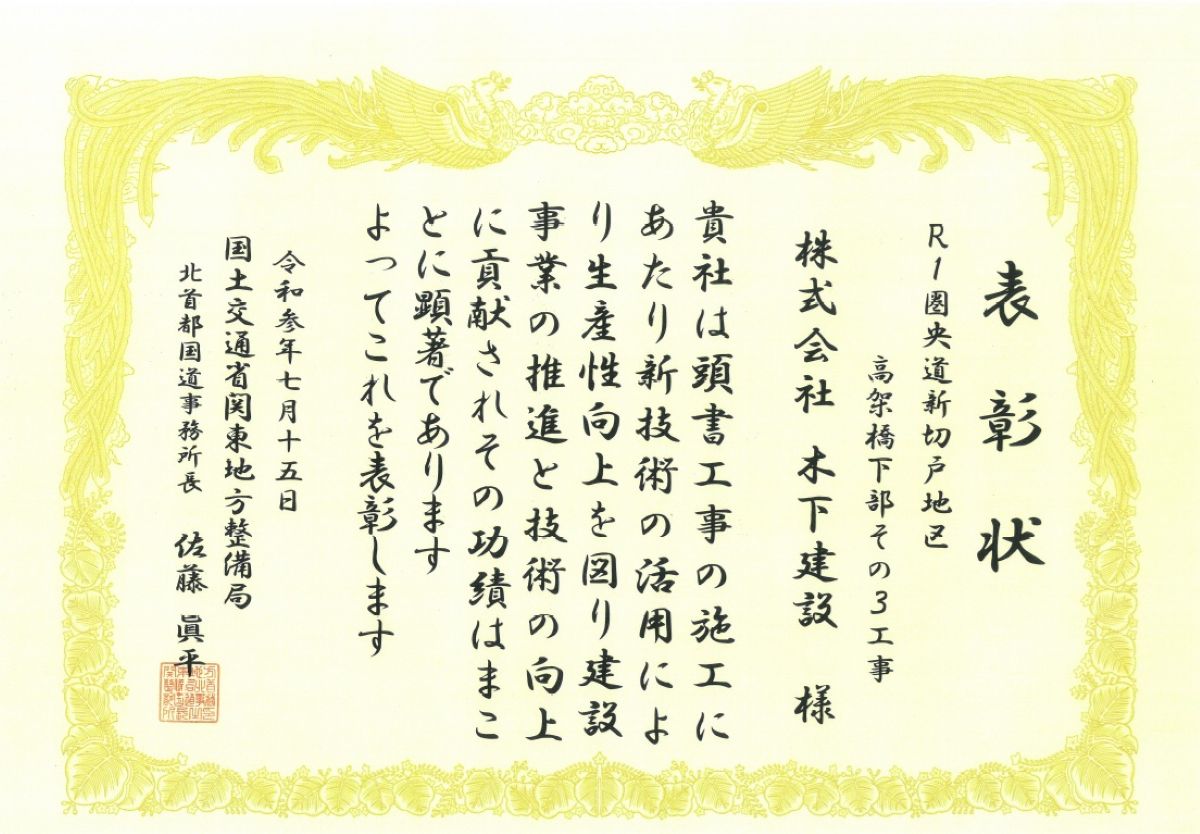 表彰状
R1圏央道新切戸地区
高架橋下部その3工事
株式会社 木下建設 様
貴社は頭書工事の施工に
あたり新技術の活用によ
り生産性向上を図り建設
事業の推進と技術の向上
に貢献されその功績はまこ
とに顕著であります
よってこれを表彰します
令和参年七月十五日
国土交通省関東地方整備局
北首都国道事務所長 佐藤 眞平